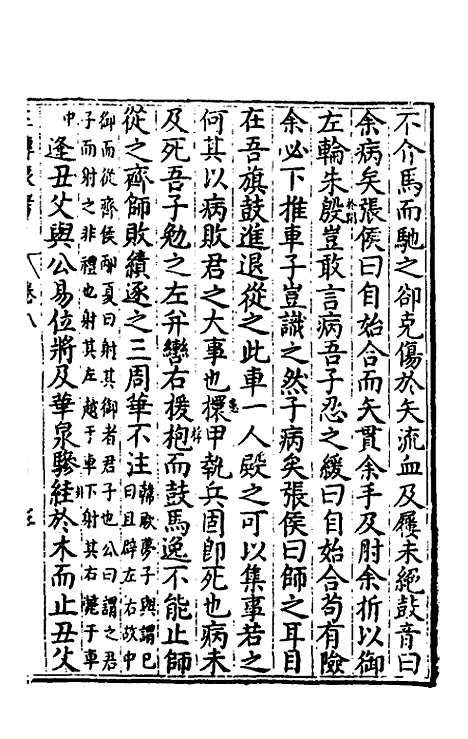 不介馬而馳之卻克傷於矢流血及屨未絕鼓音曰
余病矣張侯曰自始合而矢貫余手及肘余折以御
左輪朱殷豈敢言病吾子忍之緩曰自始合苟有險
余必下推車子豈識之然子病矣張侯曰師之耳目
在吾旗鼓進退從之此車一人殿之可以集事若之
何其以病敗君之大事也擐甲執兵固即死也病未
及死吾子勉之左并轡右援枹而鼓馬逸不能止師
從之齊師敗績逐之三周華不注韓厥夢子輿謂已
曰且辟左右故中
御而從齊侯邴夏曰射其御者君子也公曰謂之君
子而射之非禮也射其左越于車下射其右斃于車
中逢丑父與公易位將及華泉驂絓於木而止丑父
卷八